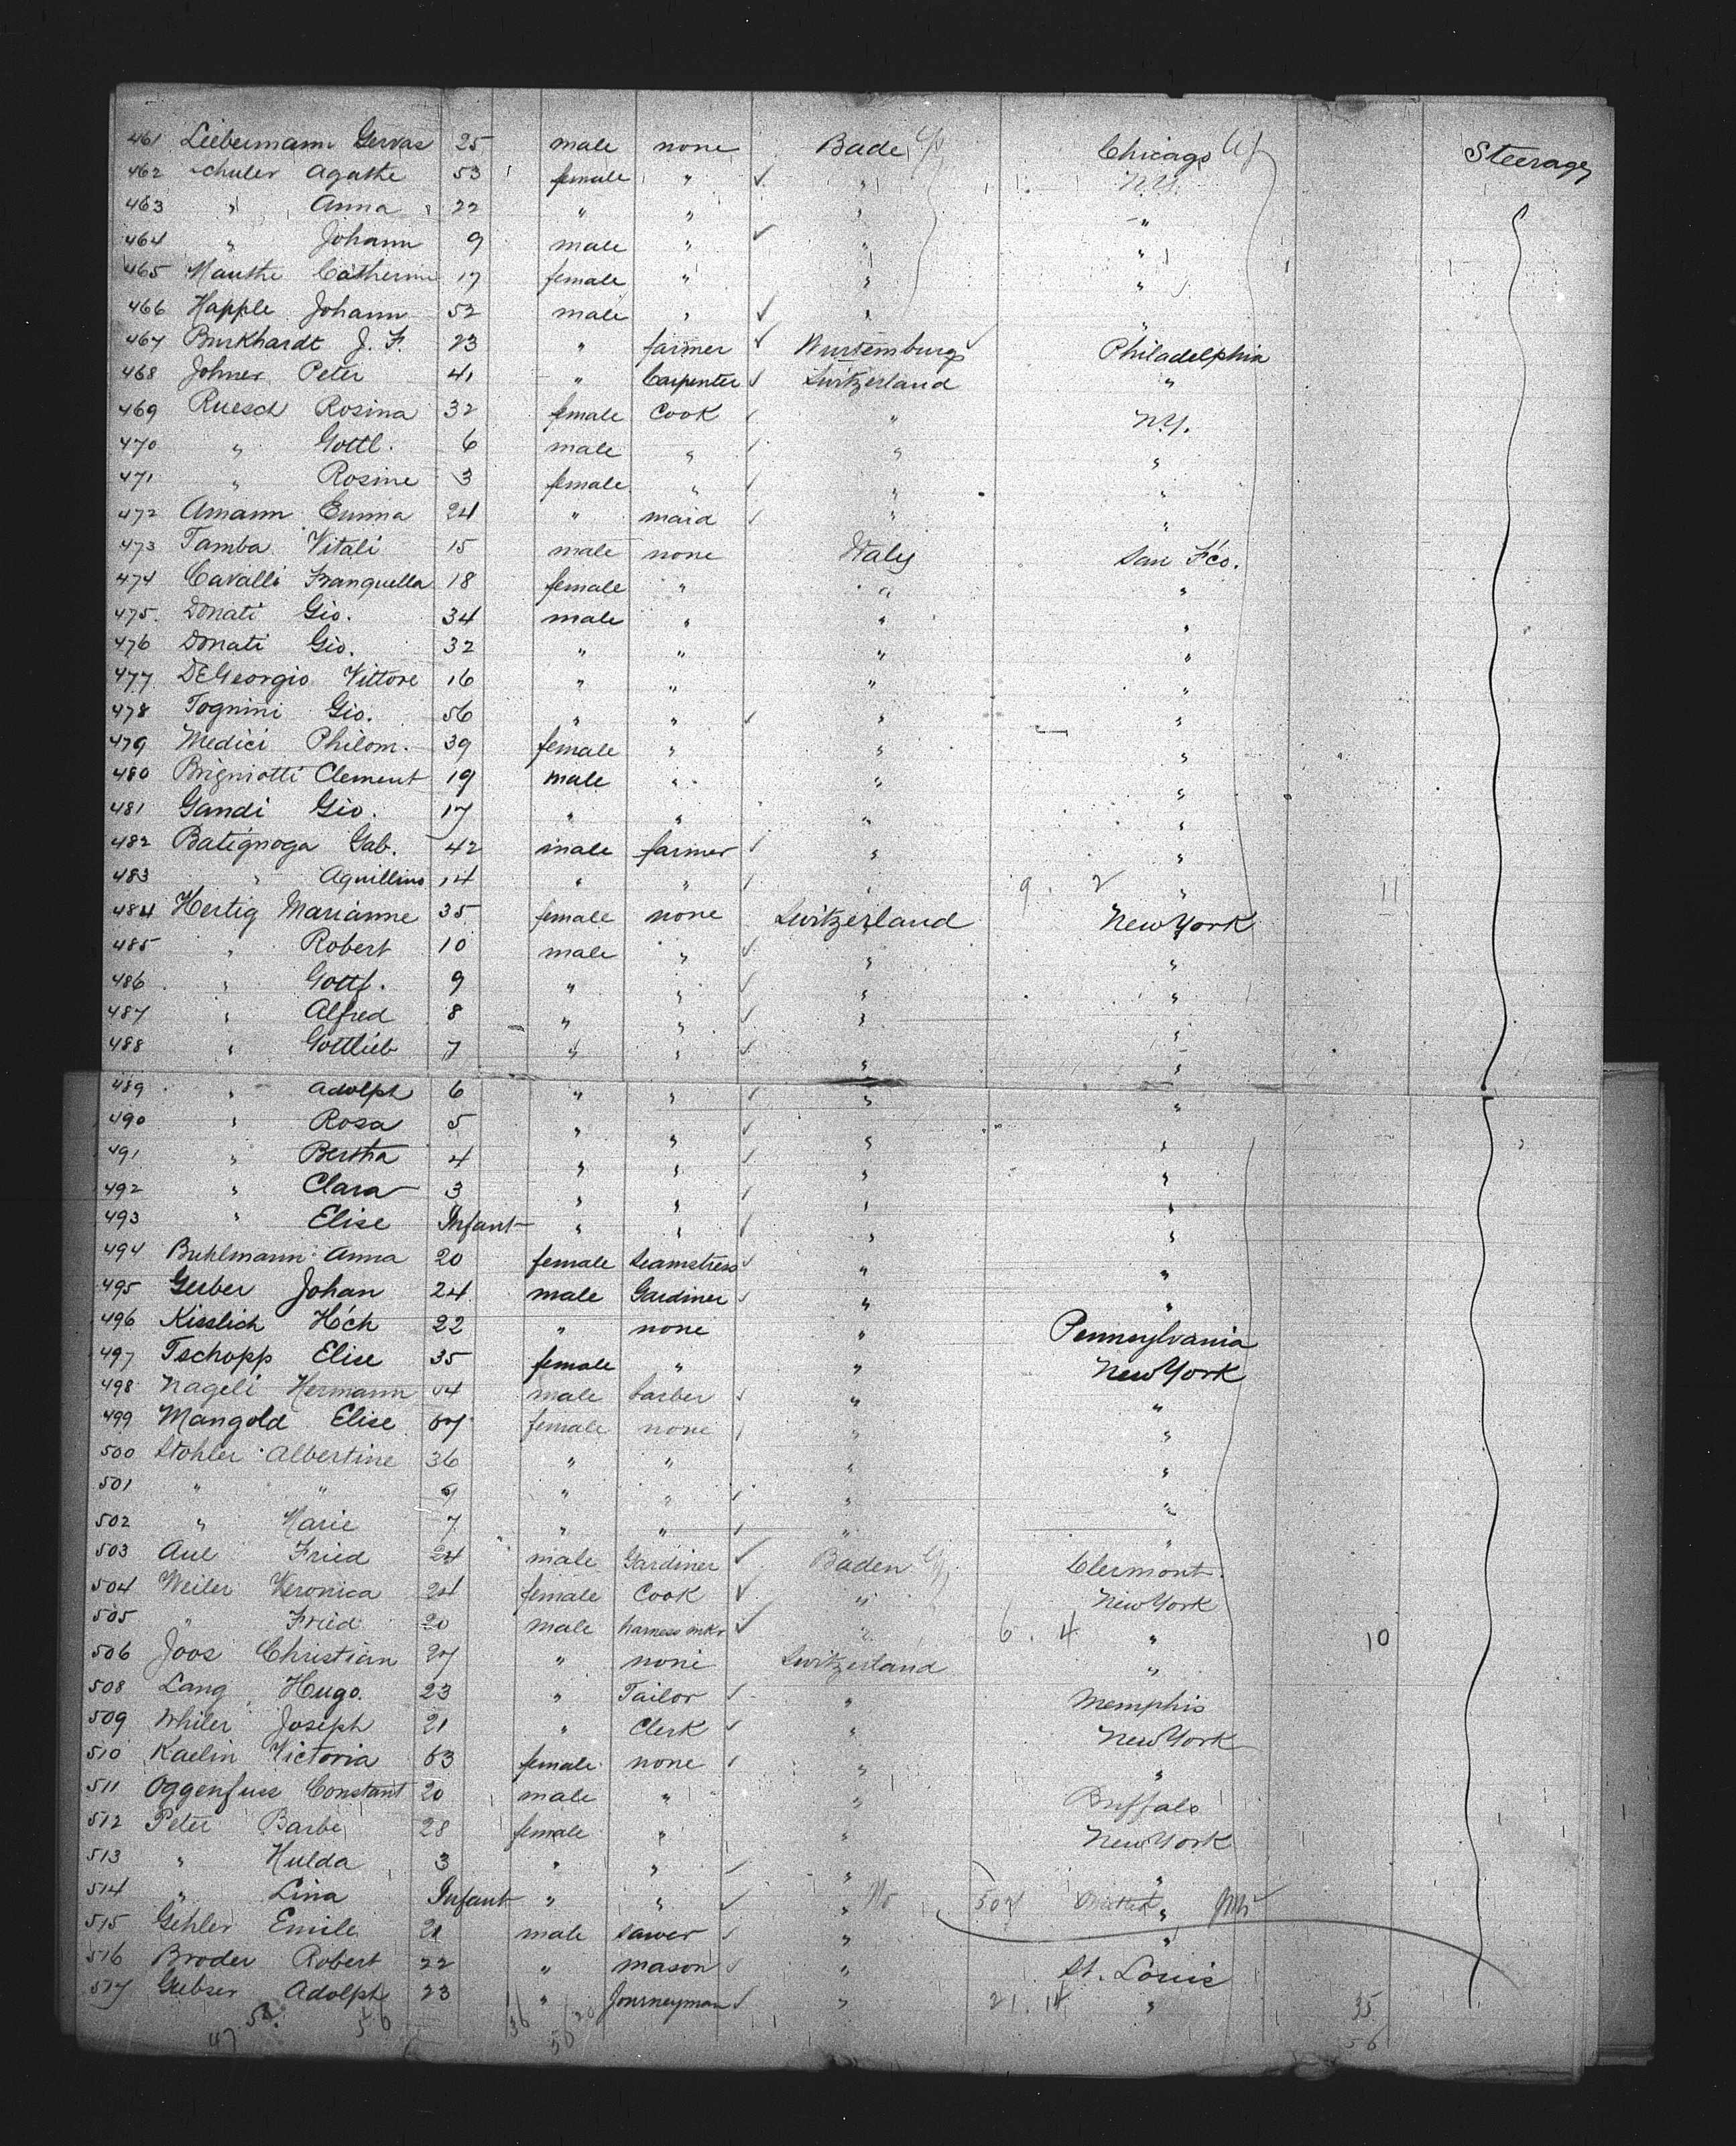 461 Liebermann Gervas 25 male none Bade Chicago Steerage
462 Schuler Agathe 53 female " ✓ " N.Y.
463 " Anna 22 " " " "
464 " Johann 9 male " ✓ " "
465 Mauthe Catherine 17 female " " "
466 Happle Johann 52 male " ✓ " "
467 Burkhardt J. F. 23 " farmer ✓ Wurtemburg Philadelphia
468 Johner Peter 41 " Carpenter ✓ Switzerland "
469 Ruesch Rosina 32 female Cook ✓ " N.Y.
470 " Gottl. 6 male " ✓ " "
471 " Rosine 3 female " ✓ " "
472 Amann Emma 24 " maid ✓ " "
473 Tamba Vitali 15 male none Italy San F'co.
474 Cavalli Franquella 18 female " " "
475. Donati Gio. 34 male " " "
476 Donati Gio. 32 " " " "
477 DeGeorgio Vittore 16 " " " "
478 Tognini Gio. 56 " " ✓ " "
479 Medici Philom. 39 female " " "
480 Brigniotti Clement 19 male " " "
481 Gandi Gio. 17 " " " "
482 Batignoga Gab. 42 male farmer ✓ " "
483 " Aquillino 14 " " ✓ " 9 . 2 " 11
484 Hertig Marianne 35 female none Switzerland New York
485 " Robert 10 male " ✓ " "
486 " Gottf. 9 " " ✓ " "
487 " Alfred 8 " " ✓ " "
488 " Gottlieb 7 " " ✓ " "
489 " Adolph 6 " " ✓ " "
490 " Rosa 5 " " ✓ " "
491 " Bertha 4 " " ✓ " "
492 " Clara 3 " " ✓ " "
493 " Elise Infant " " ✓ " "
494 Buhlmann Anna 20 female Seamstress ✓ " "
495 Gerber Johan 24 male Gardiner ✓ " "
496 Kisslich H'ch 22 " none " Pennsylvania
497 Tschopp Elise 35 female " " New York
498 Nageli Hermann 44 male barber ✓ " "
499 Mangold Elise female none ✓ " "
500 Stohler Albertine 36 " " " "
501 " " 9 " " ✓ " "
502 " Marie 7 " " ✓ " "
503 Aue Fried 24 male Gardiner ✓ Baden Clermont.
504 Weiler Veronica 24 female Cook ✓ " New York
505 " Fried 20 male harness mkr ✓ " 6 . 4 " 10
506 Joos Christian 27 " none Switzerland "
508 Lang Hugo. 23 " Tailor ✓ " Memphis
509 Whiler Joseph 21 " Clerk ✓ " New York
510 Kaelin Victoria 63 female none ✓ " "
511 Oggenfuss Constant 20 male " " Buffalo
512 Peter Barbe 28 female " " New York
513 " Hulda 3 " " ✓ " "
514 " Lina Infant " " ✓ " No 507 "
515 Gehler Emile 21 male sawer ✓ " "
516 Broder Robert 22 " mason ✓ " St. Louis
517 Gubser Adolph 23 " Journeyman ✓ " 21 . 14 " 35
47 56 36 20 50 56